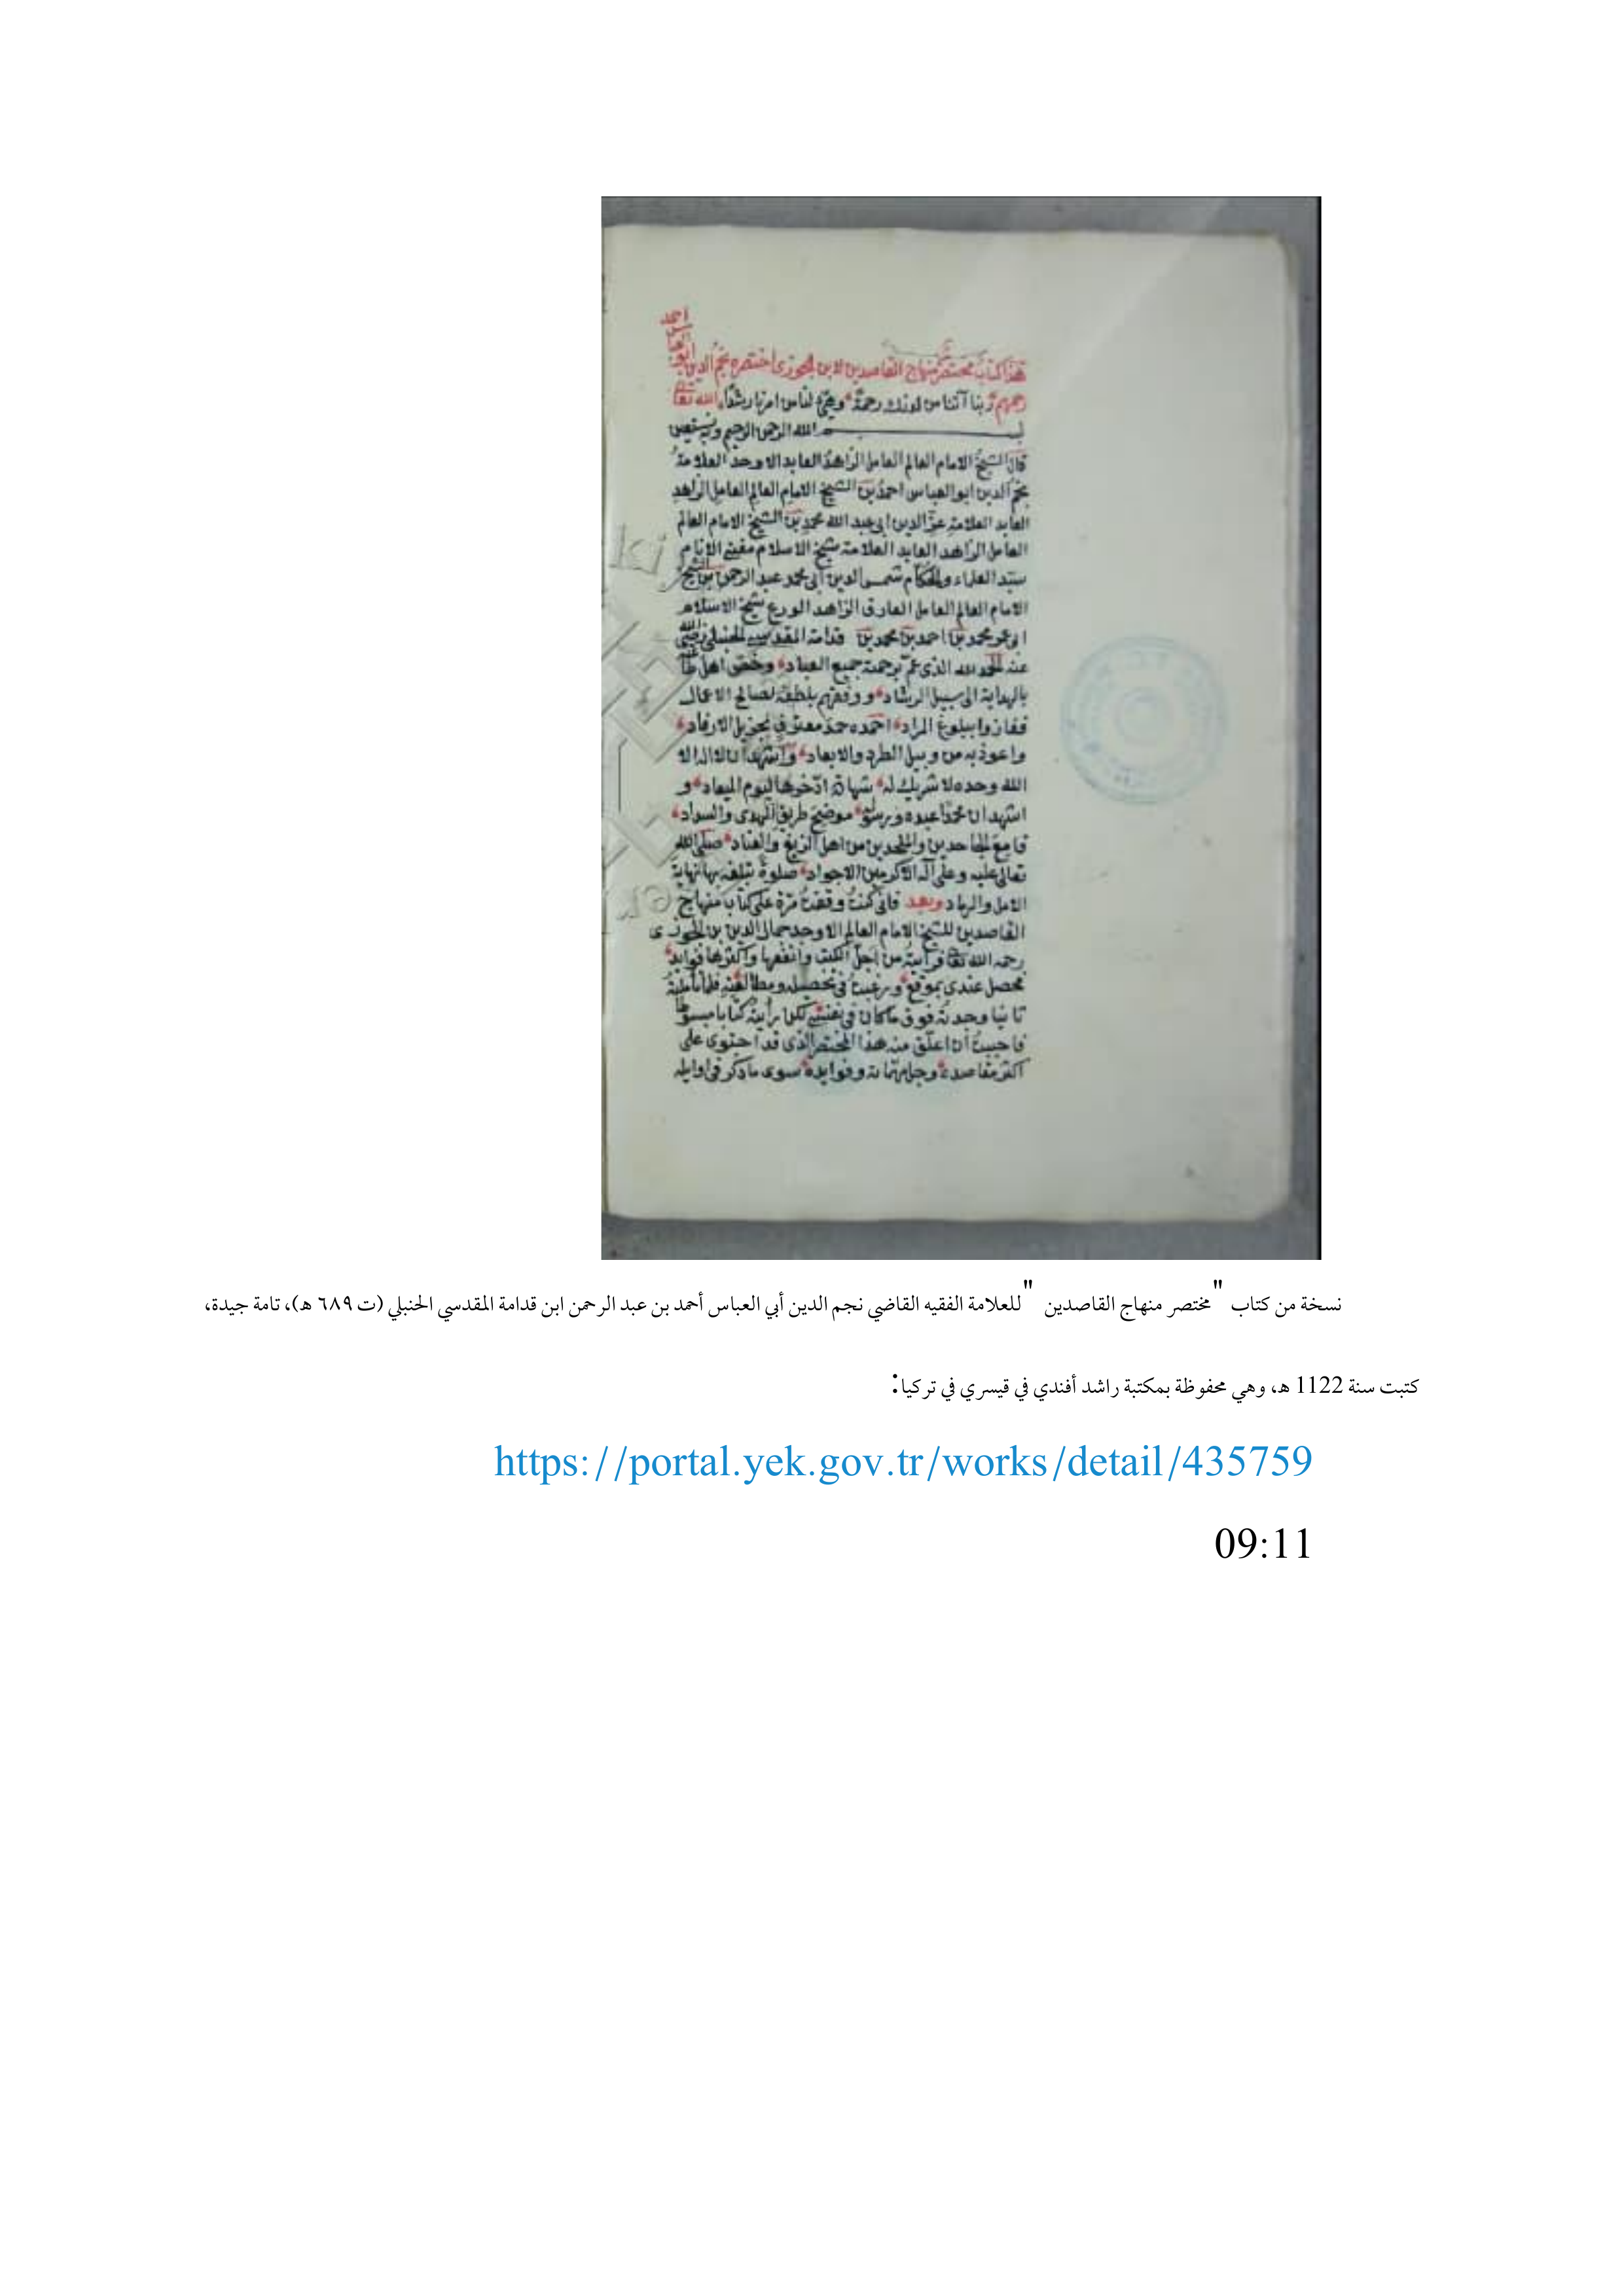 هذا كتاب مختصر منهاج القاصدين لابن الجوزى اختصره نجم الدين ابو العباس احمد
رحمهم الله تعا ربنا آتنا من لدنك رحمة وهيئ لنا من امرنا رشدا
بسم الله الرحمن الرحيم وبه نستعين
قال الشيخ الامام العالم العامل الزاهد العابد الاوحد العلامة
نجم الدين ابو العباس احمد بن الشيخ الامام العالم العامل الزاهد
العابد العلامة عز الدين ابى عبد الله محمد بن الشيخ الامام العالم
العامل الزاهد العابد العلامة شيخ الاسلام مفتى الانام
سيد العلماء والحكام شمس الدين ابى محمد عبد الرحمن بن الشيخ
الامام العالم العامل العارف الزاهد الورع شيخ الاسلام
ابى عمر محمد بن احمد بن محمد بن قدامة المقدسى الحنبلى رضى الله
عنه الحمد لله الذى عم برحمته جميع العباد وخص اهل طا
بالهداية الى سبيل الرشاد ووفقهم بلطفه لصالح الاعمال
ففازوا ببلوغ المراد احمده حمد معترف بجزيل الارفاد
واعوذ به من وبيل الطرد والابعاد واشهد ان لا اله الا
الله وحده لا شريك له شهادة ادخرها ليوم الميعاد و
اشهد ان محمدا عبده ورسوله موضح طريق الهدى والسداد
قامع الجاحدين والملحدين من اهل الزيغ والعناد صلى الله
تعالى عليه وعلى آله الاكرمين الاجواد صلوة تبلغه بها نهاية
الامل والمراد وبعد فانى كنت وقفت مرة على كتاب منهاج
القاصدين للشيخ الامام العالم الاوحد جمال الدين بن الجوزى
رحمه الله تعا فرأيته من اجل الكتب وانفعها واكثرها فوايد
فحصل عندى بموقع ورغبت فى تحصيله ومطالعته فلما تأملته
ثانيا وجدته فوق ما كان فى نفسى لكن رأيته كتابا مبسوطا
فاحببت ان اعلق منه هذا المختصر الذى قد احتوى على
اكثر مقاصده وجل مهماته وفوايده سوى ما ذكر فى اوايله
نسخة من كتاب "مختصر منهاج القاصدين "للعلامة الفقيه القاضي نجم الدين أبي العباس أحمد بن عبد الرحمن ابن قدامة المقدسي الحنبلي (ت ٦٨٩ هـ)، تامة جيدة،
كتبت سنة 1122 هـ، وهي محفوظة بمكتبة راشد أفندي في قيسري في تركيا:
https://portal.yek.gov.tr/works/detail/435759
09:11